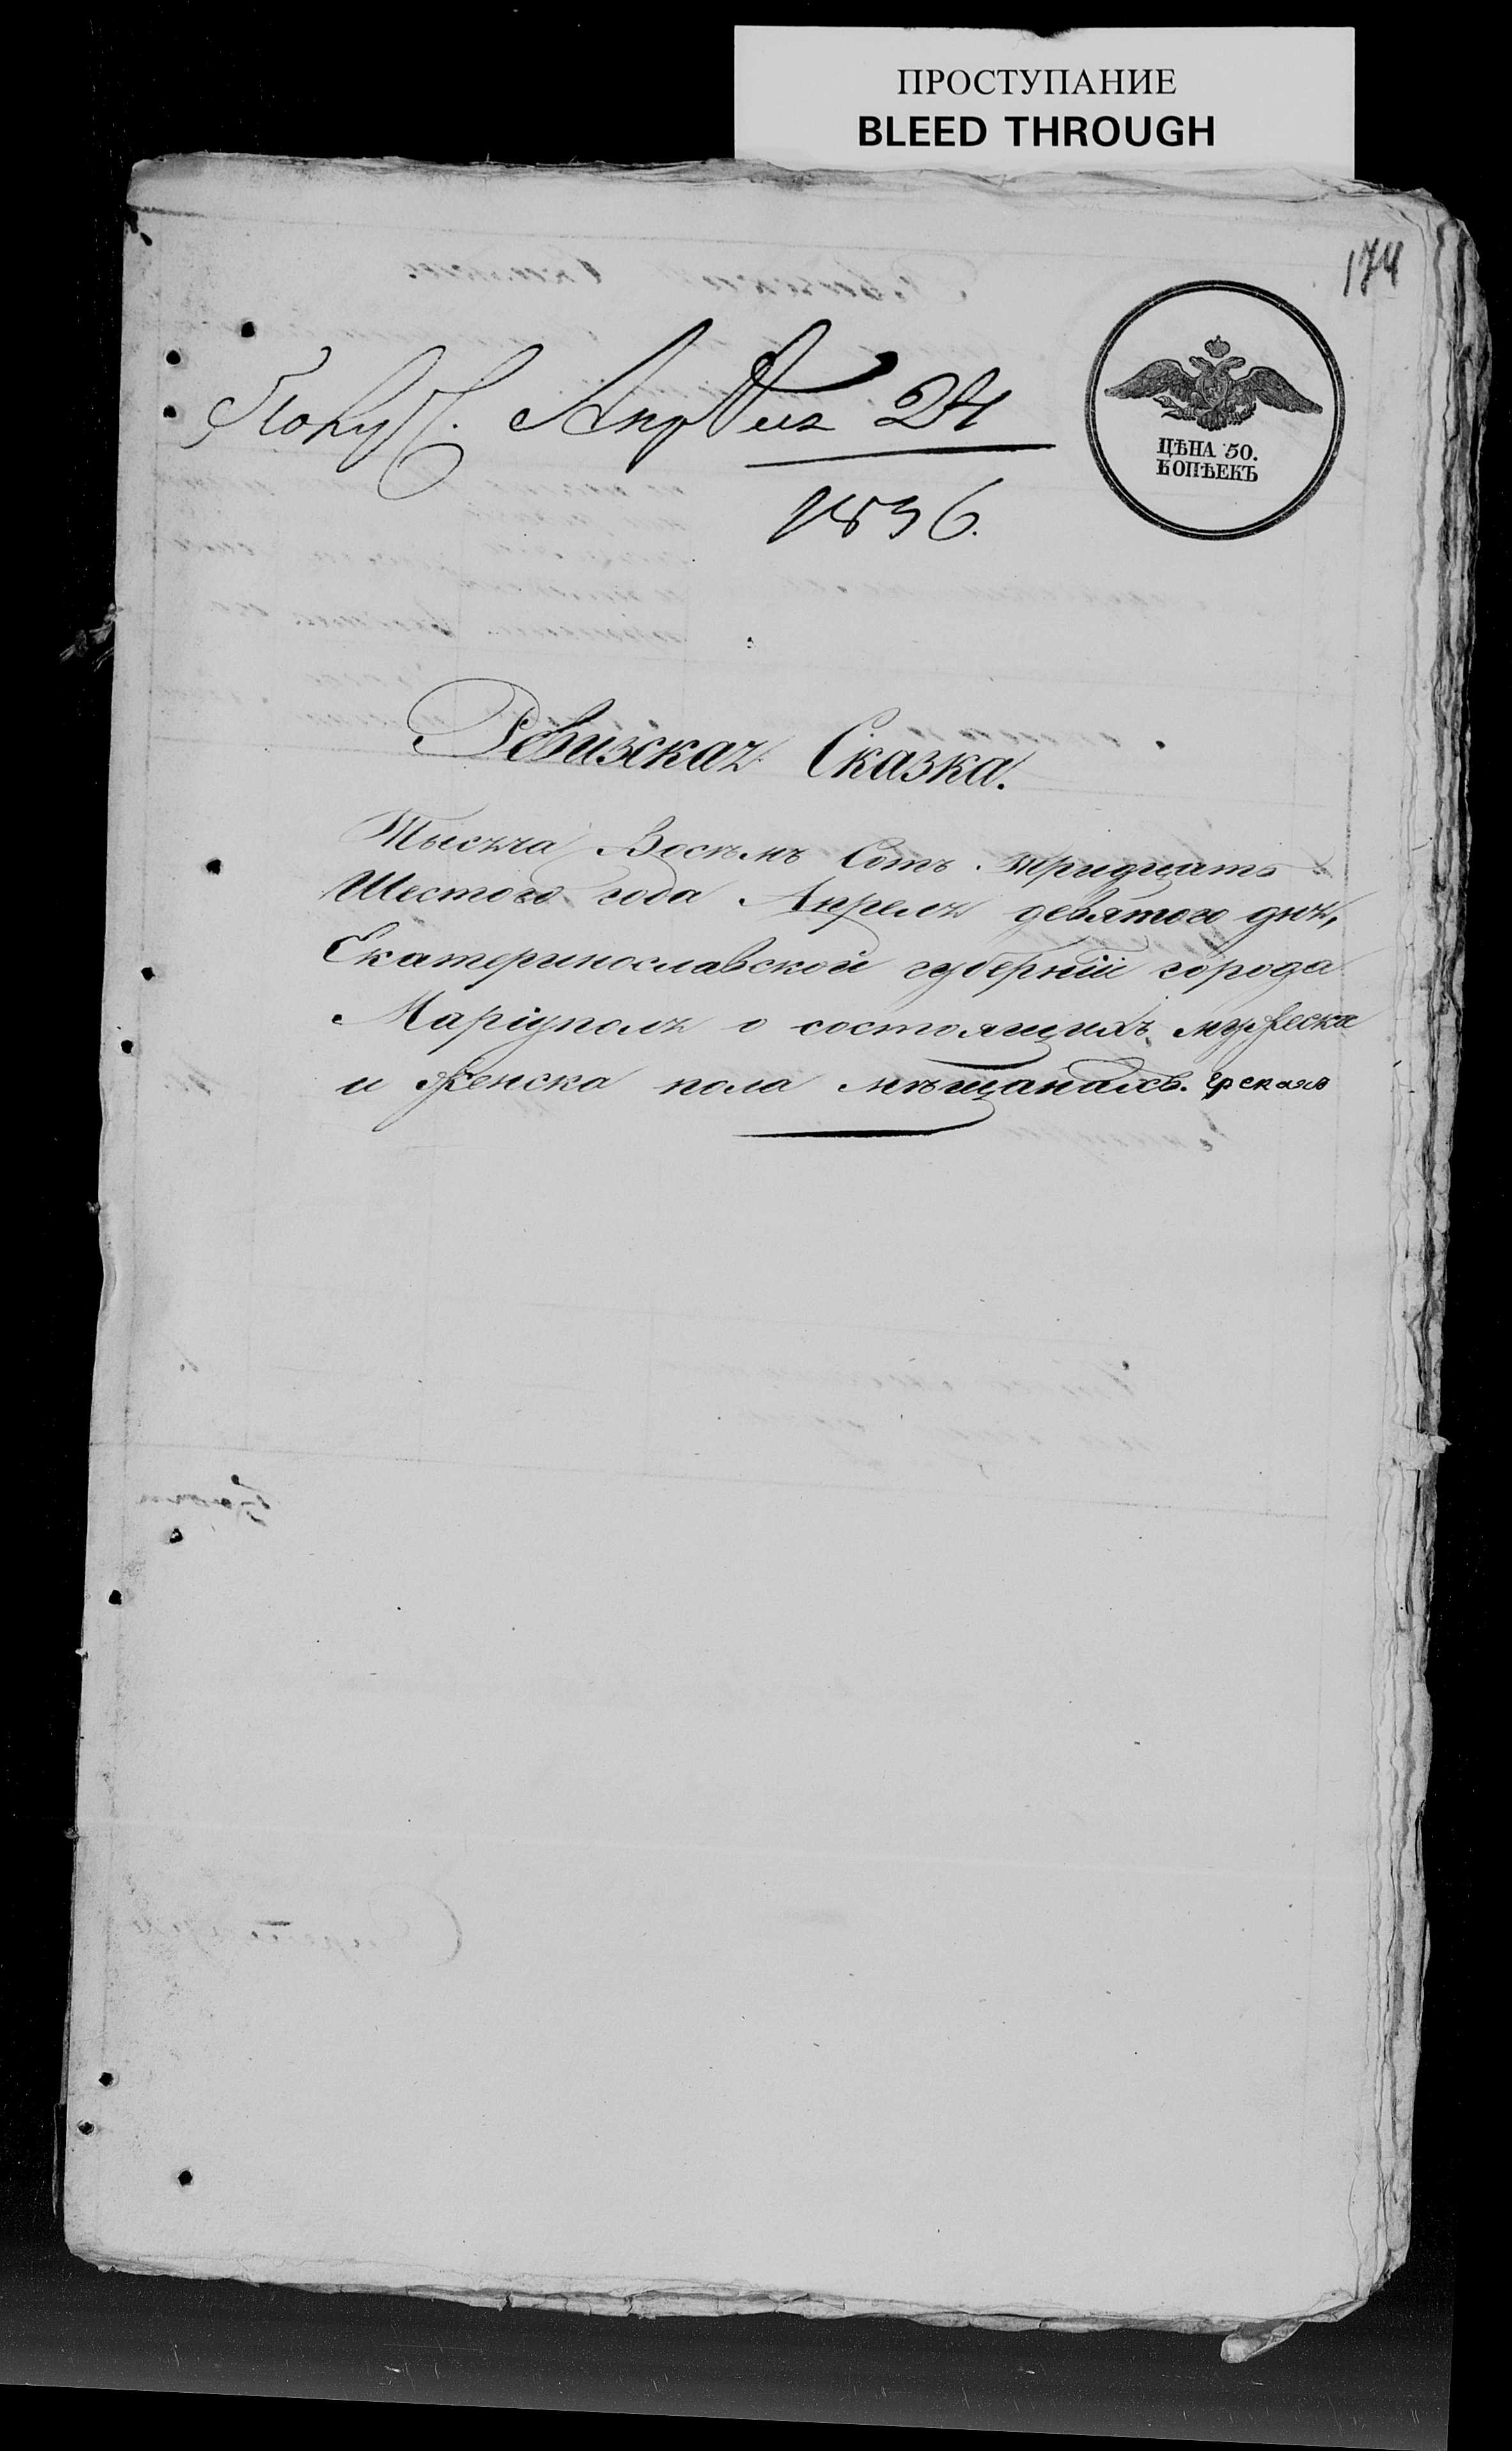 ПРОСТУПАНИЕ
BLEED THROUGH
174
Апреля 24
1836.
ЦѢНА 50.
КОПѢЕКЪ
Ревизская Сказка.
Тысяча Восемь Сотъ тридцать
Шестого года Апреля девятого дня,
Екатеринославской губерніи города
Маріуполя о состоящихъ мужеска
и женска пола мѣщанахъ.